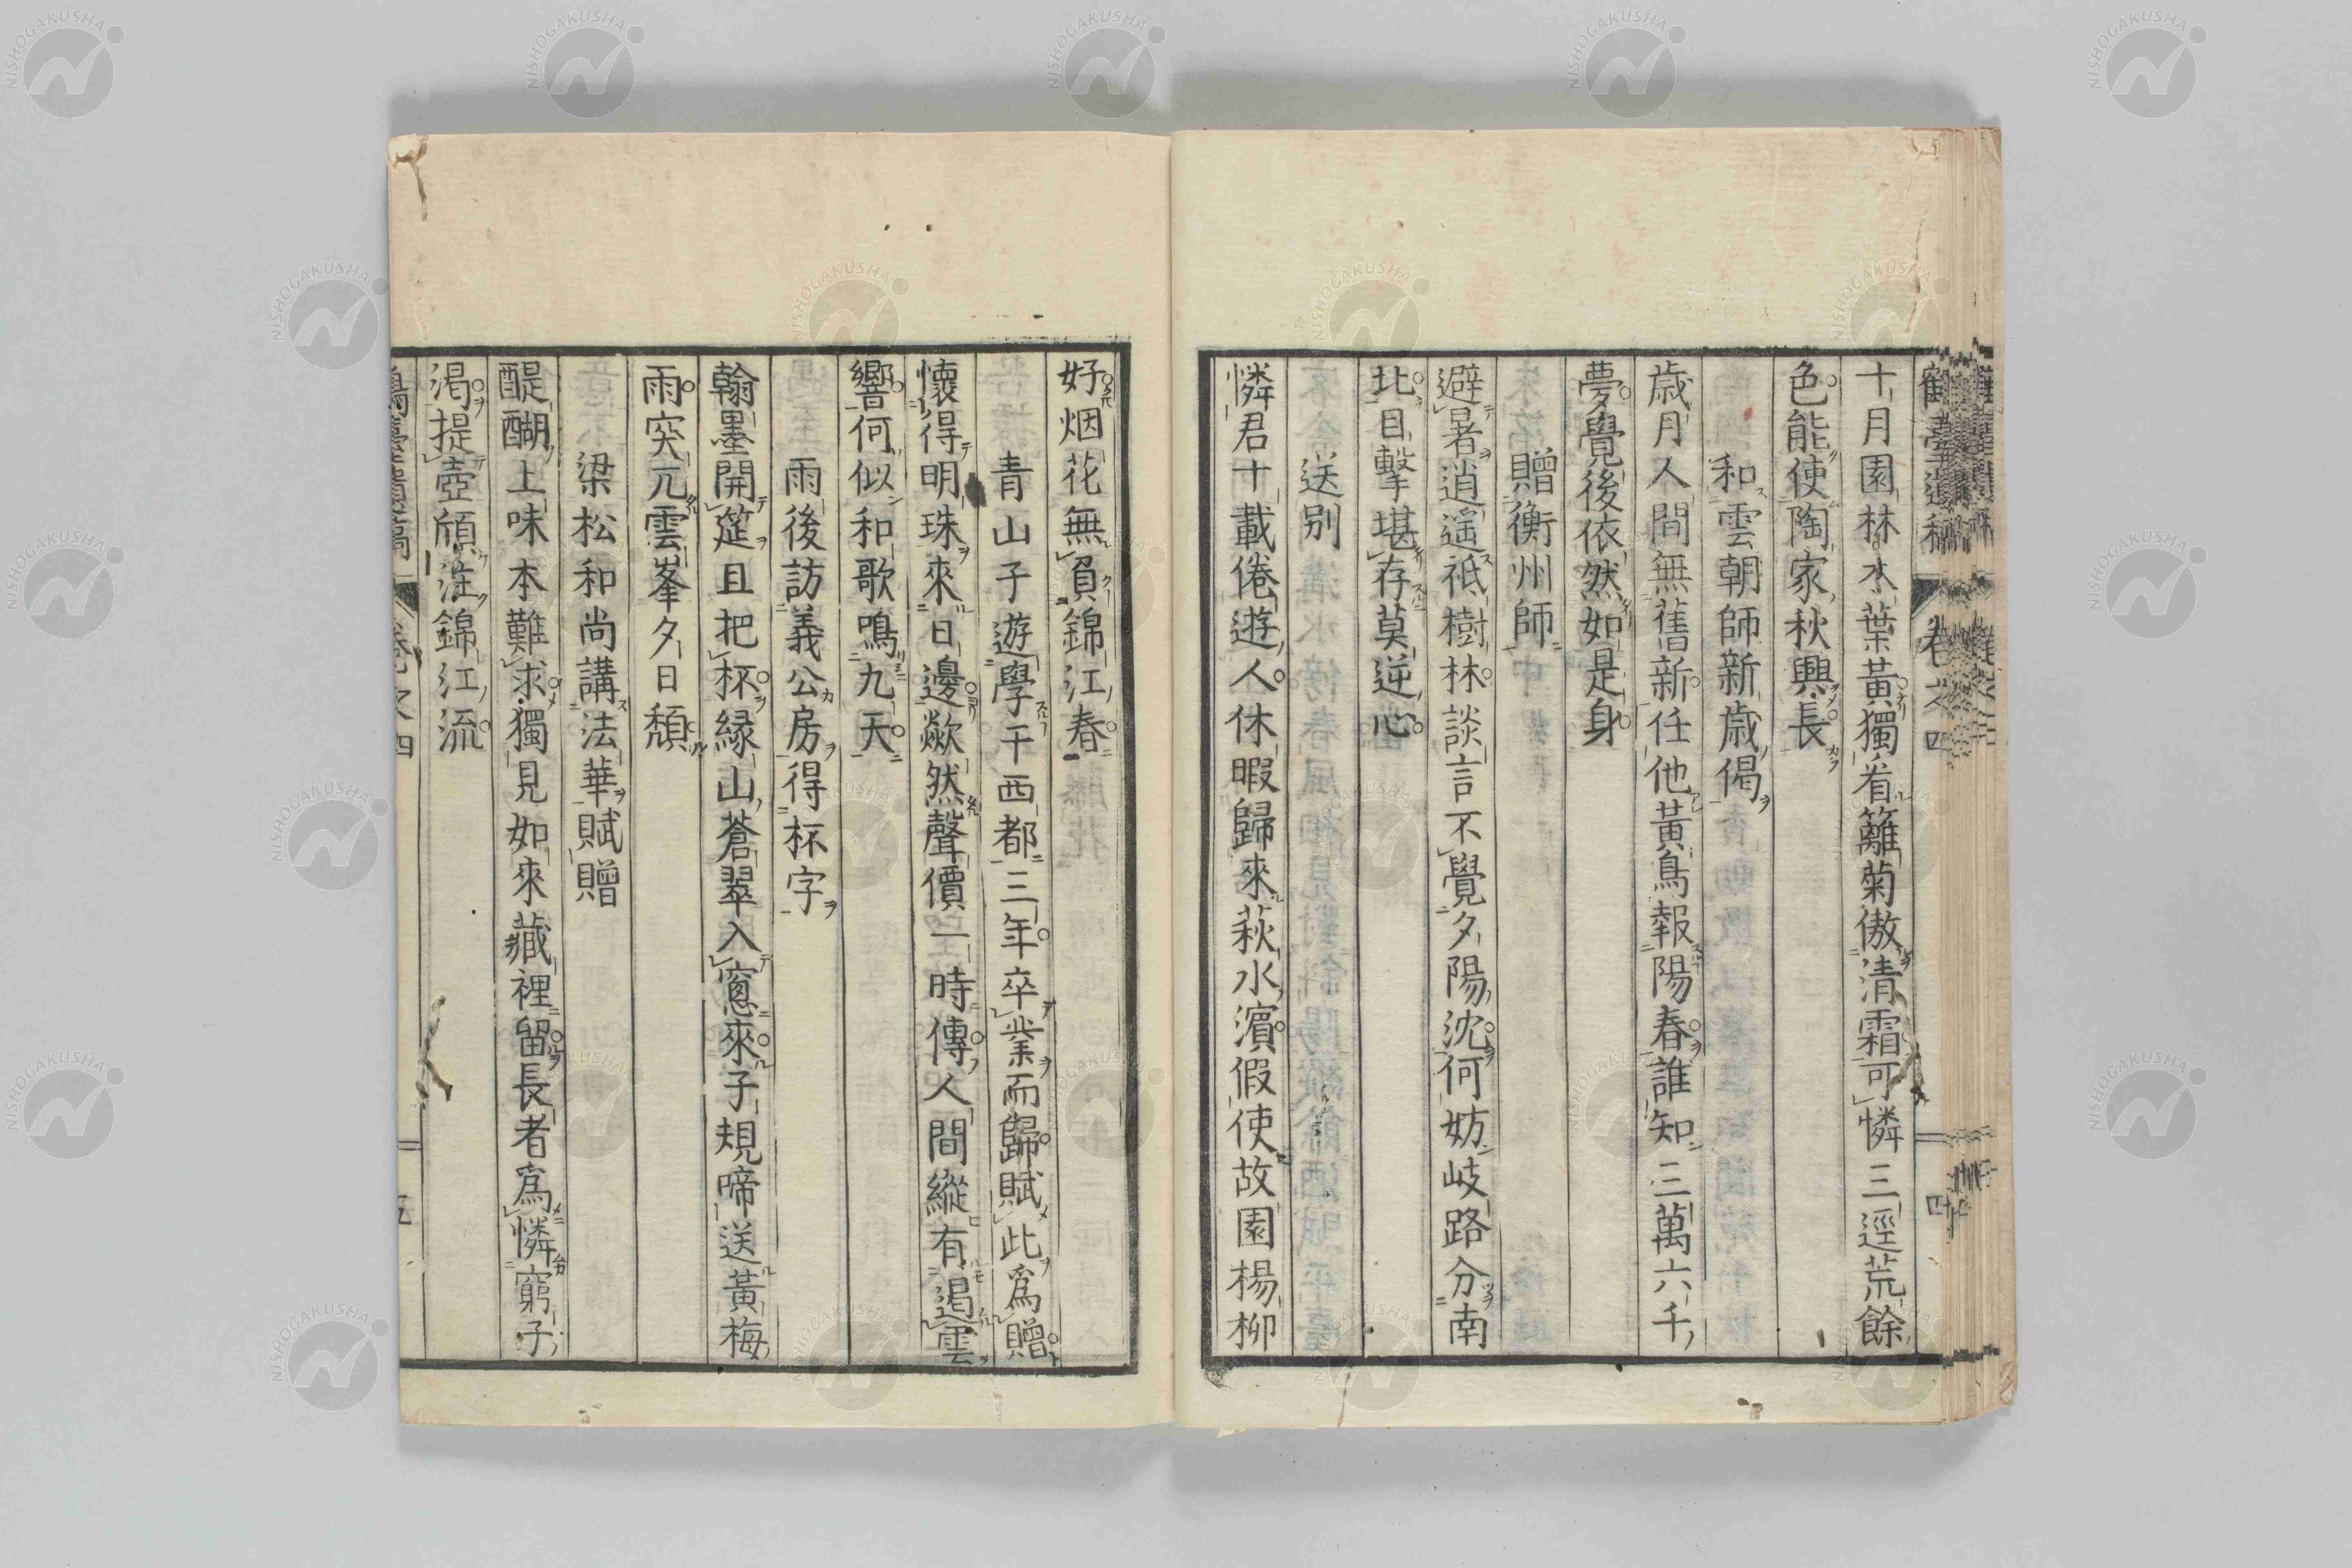 十月園林木葉黃獨看籬菊傲清霜可憐三逕荒餘
色能使陶家秋興長
和雲朝師新歲偈
歲月人間無舊新任他黃鳥報陽春誰知三萬六千
夢覺後依然如是身
贈衡州師
避暑逍遙祗樹林談言不覺夕陽沈何妨岐路分南
北目擊堪存莫逆心
送別
憐君十載倦遊人休暇歸來萩水濱假使故園楊柳
好烟花無負錦江春
青山子遊學于西都三年卒業而歸賦此爲贈
懷得明珠來日邊歘然聲價一時傳人間縱有遏雲
響何似和歌鳴九天
雨後訪義公房得杯字
翰墨開筵且把杯緣山蒼翠入窻來子規啼送黃梅
雨突兀雲峯夕日頹
梁松和尚講法華賦贈
醍醐上味本難求獨見如來藏裡留長者爲憐窮子
渴提壺頎注錦江流
卷之四